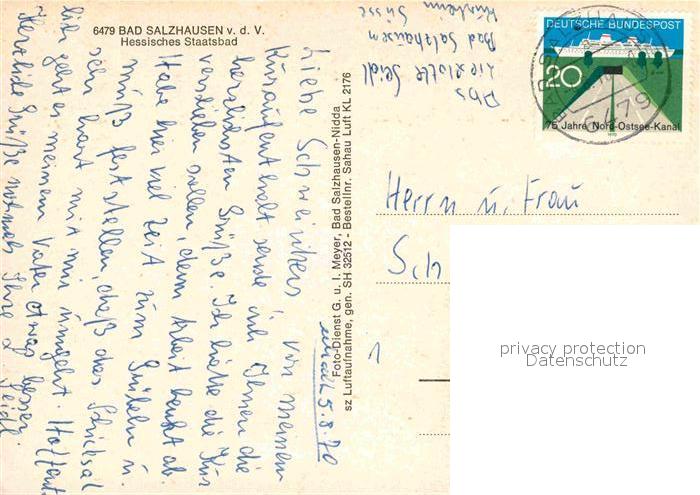 6479 BAD SALZHAUSEN v. d. V.
Hessisches Staatsbad
Abs
Lieselotte Seidl
Bad Salzhausen
Kurheim
DEUTSCHE BUNDESPOST
20
75 Jahre Nord-Ostsee-Kanal
1970
6479
5.8.70
Liebe von meinem
Kuraufenthalt sende ich Ihnen die
herzlichsten Grüße. Ich hätte die Kur
verschieben sollen, denn
Habe hier viel Zeit zum Grübeln u.
muß feststellen, daß das Schicksal
sehr hart mit mir umgeht. Hoffentl.
geht es meinem Vater etwas besser.
Herzliche Grüße Ihre L. Seidl
Foto-Dienst G. u. I. Meyer, Bad Salzhausen-Nidda
sz Luftaufnahme, gen. SH 32512 - Bestellnr. Sahau Luft KL 2176
Herrn u. Frau
Sch
1
privacy protection
Datenschutz